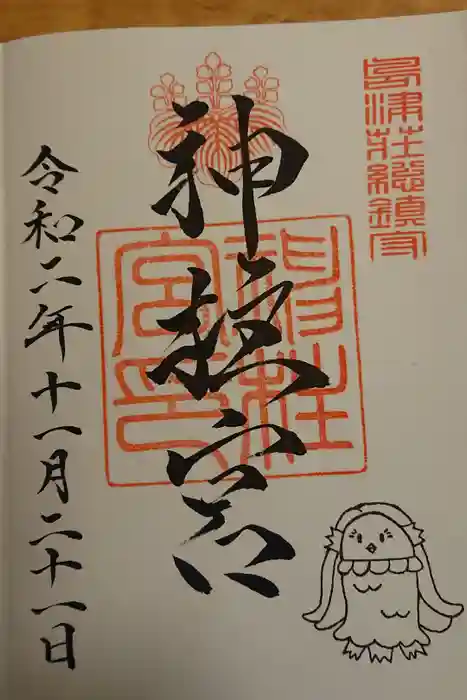 島津荘総鎮守
神柱宮
神柱宮印
令和二年十一月二十一日